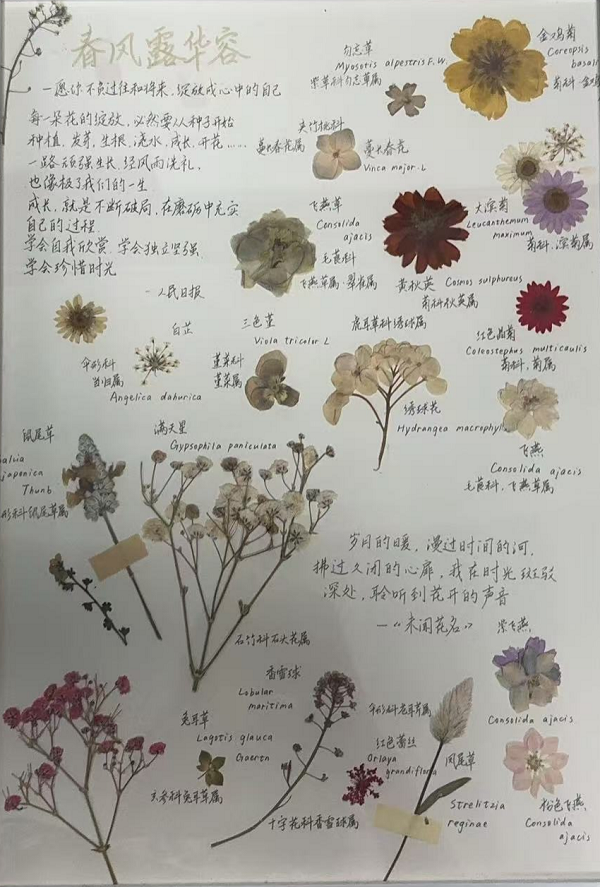 春风露华容
一愿你不负过往和将来,绽放成心中的自己
每一朵花的绽放,必然要从种子开始
种植,发芽,生根,浇水,成长,开花……
一路顽强生长,经风雨洗礼,
也像极了我们的一生
成长,就是不断破局,在磨砺中充实
自己的过程
学会自我欣赏,学会独立坚强
学会珍惜时光
—人民日报
勿忘草
Myosotis alpestris F.W.
紫草科勿忘草属
金鸡菊
Coreopsis
basal
菊科 金鸡
夹竹桃科
蔓长春花属
蔓长春花
Vinca major. L
飞燕草
Consolida
ajacis
毛茛科
飞燕草属 翠雀属
大滨菊
Leucanthemum
maximum
菊科.滨菊属
黄秋英 Cosmos sulphureus
菊科秋英属
白芷
伞形科
当归属
Angelica dahurica
三色堇
Viola tricolor L
堇菜科
堇菜属
虎耳草科绣球属
绣球花
Hydrangea macrophyll
红色晶菊
Coleostephus multicaulis
菊科,菊属
飞燕
Consolida ajacis
毛茛科,飞燕草属
鼠尾草
alvia
japonica
Thunb
形科鼠尾草属
满天星
Gypsophila paniculata
石竹科石头花属
岁月的暖,漫过时间的河,
拂过久闭的心扉,我在时光斑驳
深处,聆听到花开的声音
—《未闻花名》
紫飞燕
Consolida ajacis
香雪球
Lobular
maritima
十字花科香雪球属
兔耳草
Lagotis glauca
Gaertn
玄参科兔耳草属
伞形科
红色蕾丝
Orlaya
grandiflora
凤尾草
Strelitzia
reginae
粉色飞燕
Consolida
ajacis